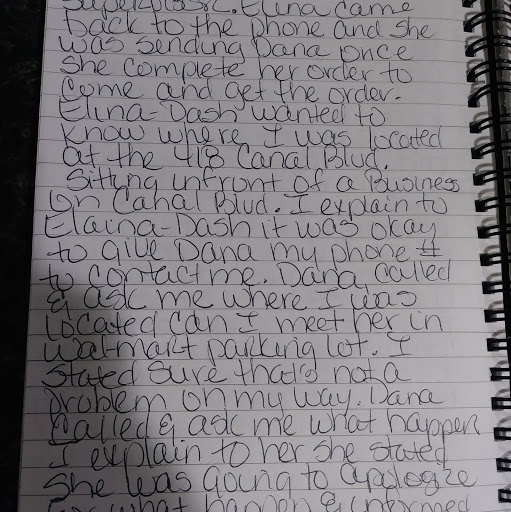 Elina came
back to the phone and she
was sending Dana once
she complete her order to
come and get the order.
Elina-Dash wanted to
know where I was located
at the 418 Canal Blvd.
Sitting infront of a Business
on Canal Blvd. I explain to
Elaina-Dash it was okay
to give Dana my phone #
to contact me. Dana called
& ask me where I was
located can I meet her in
Walmart parking lot. I
stated sure that's not a
problem on my way. Dana
called & ask me what happen
I explain to her she stated
she was going to apologize
for what happen & informed